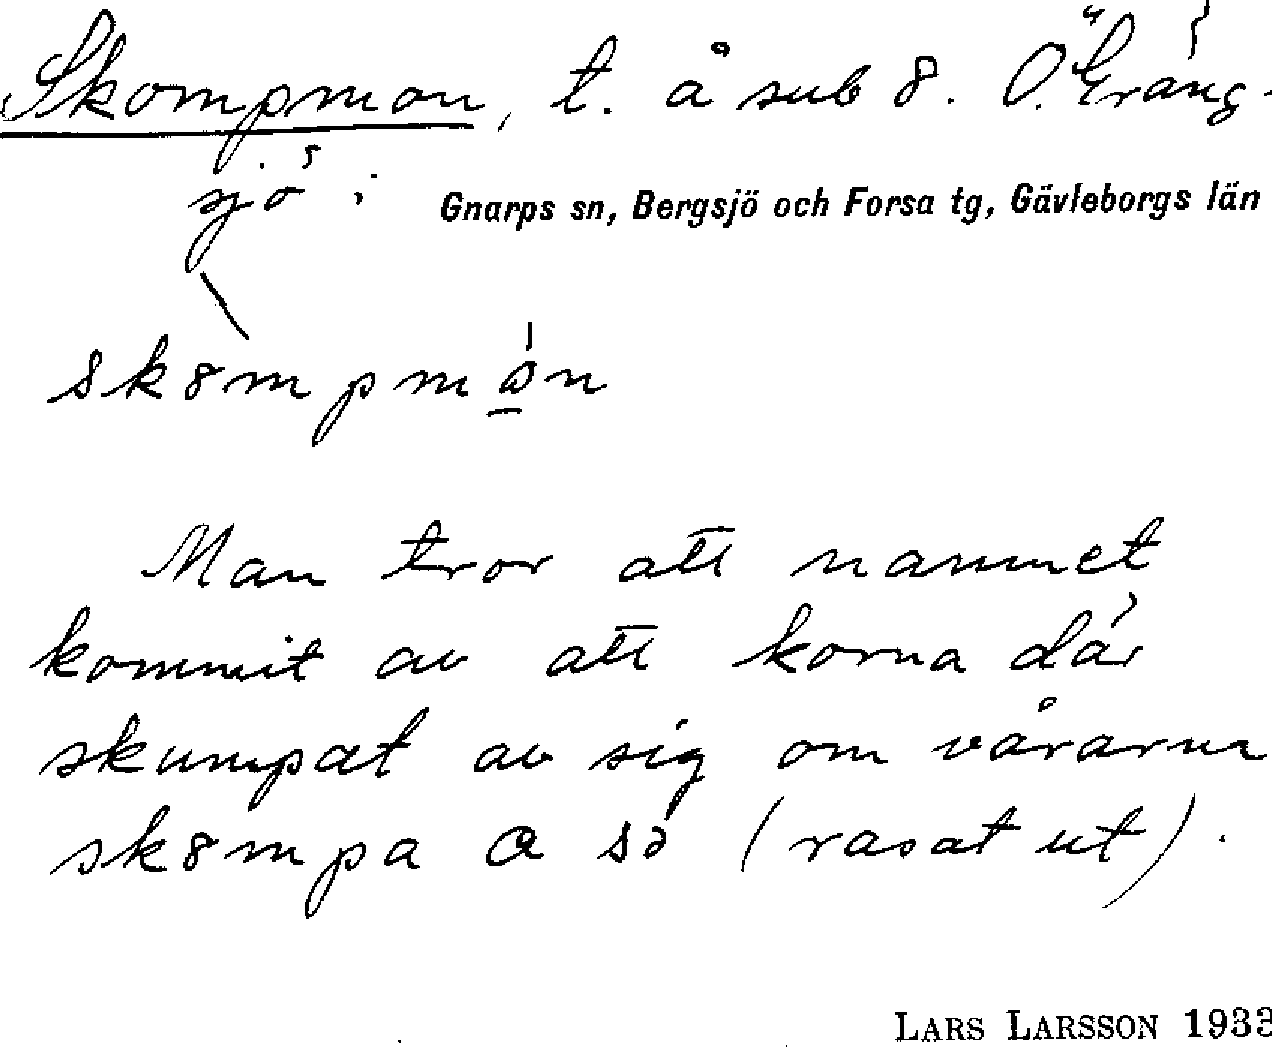 Skompmon, t. å sub 8. Ö. Gräng-
sjö i Gnarps sn, Bergsjö och Forsa tg, Gävleborgs län
sk8mpmòn
Man tror att namnet
kommit av att korna där
skumpat av sig om vårarna
sk8mpa a sə (rasat ut).
LARS LARSSON 1933